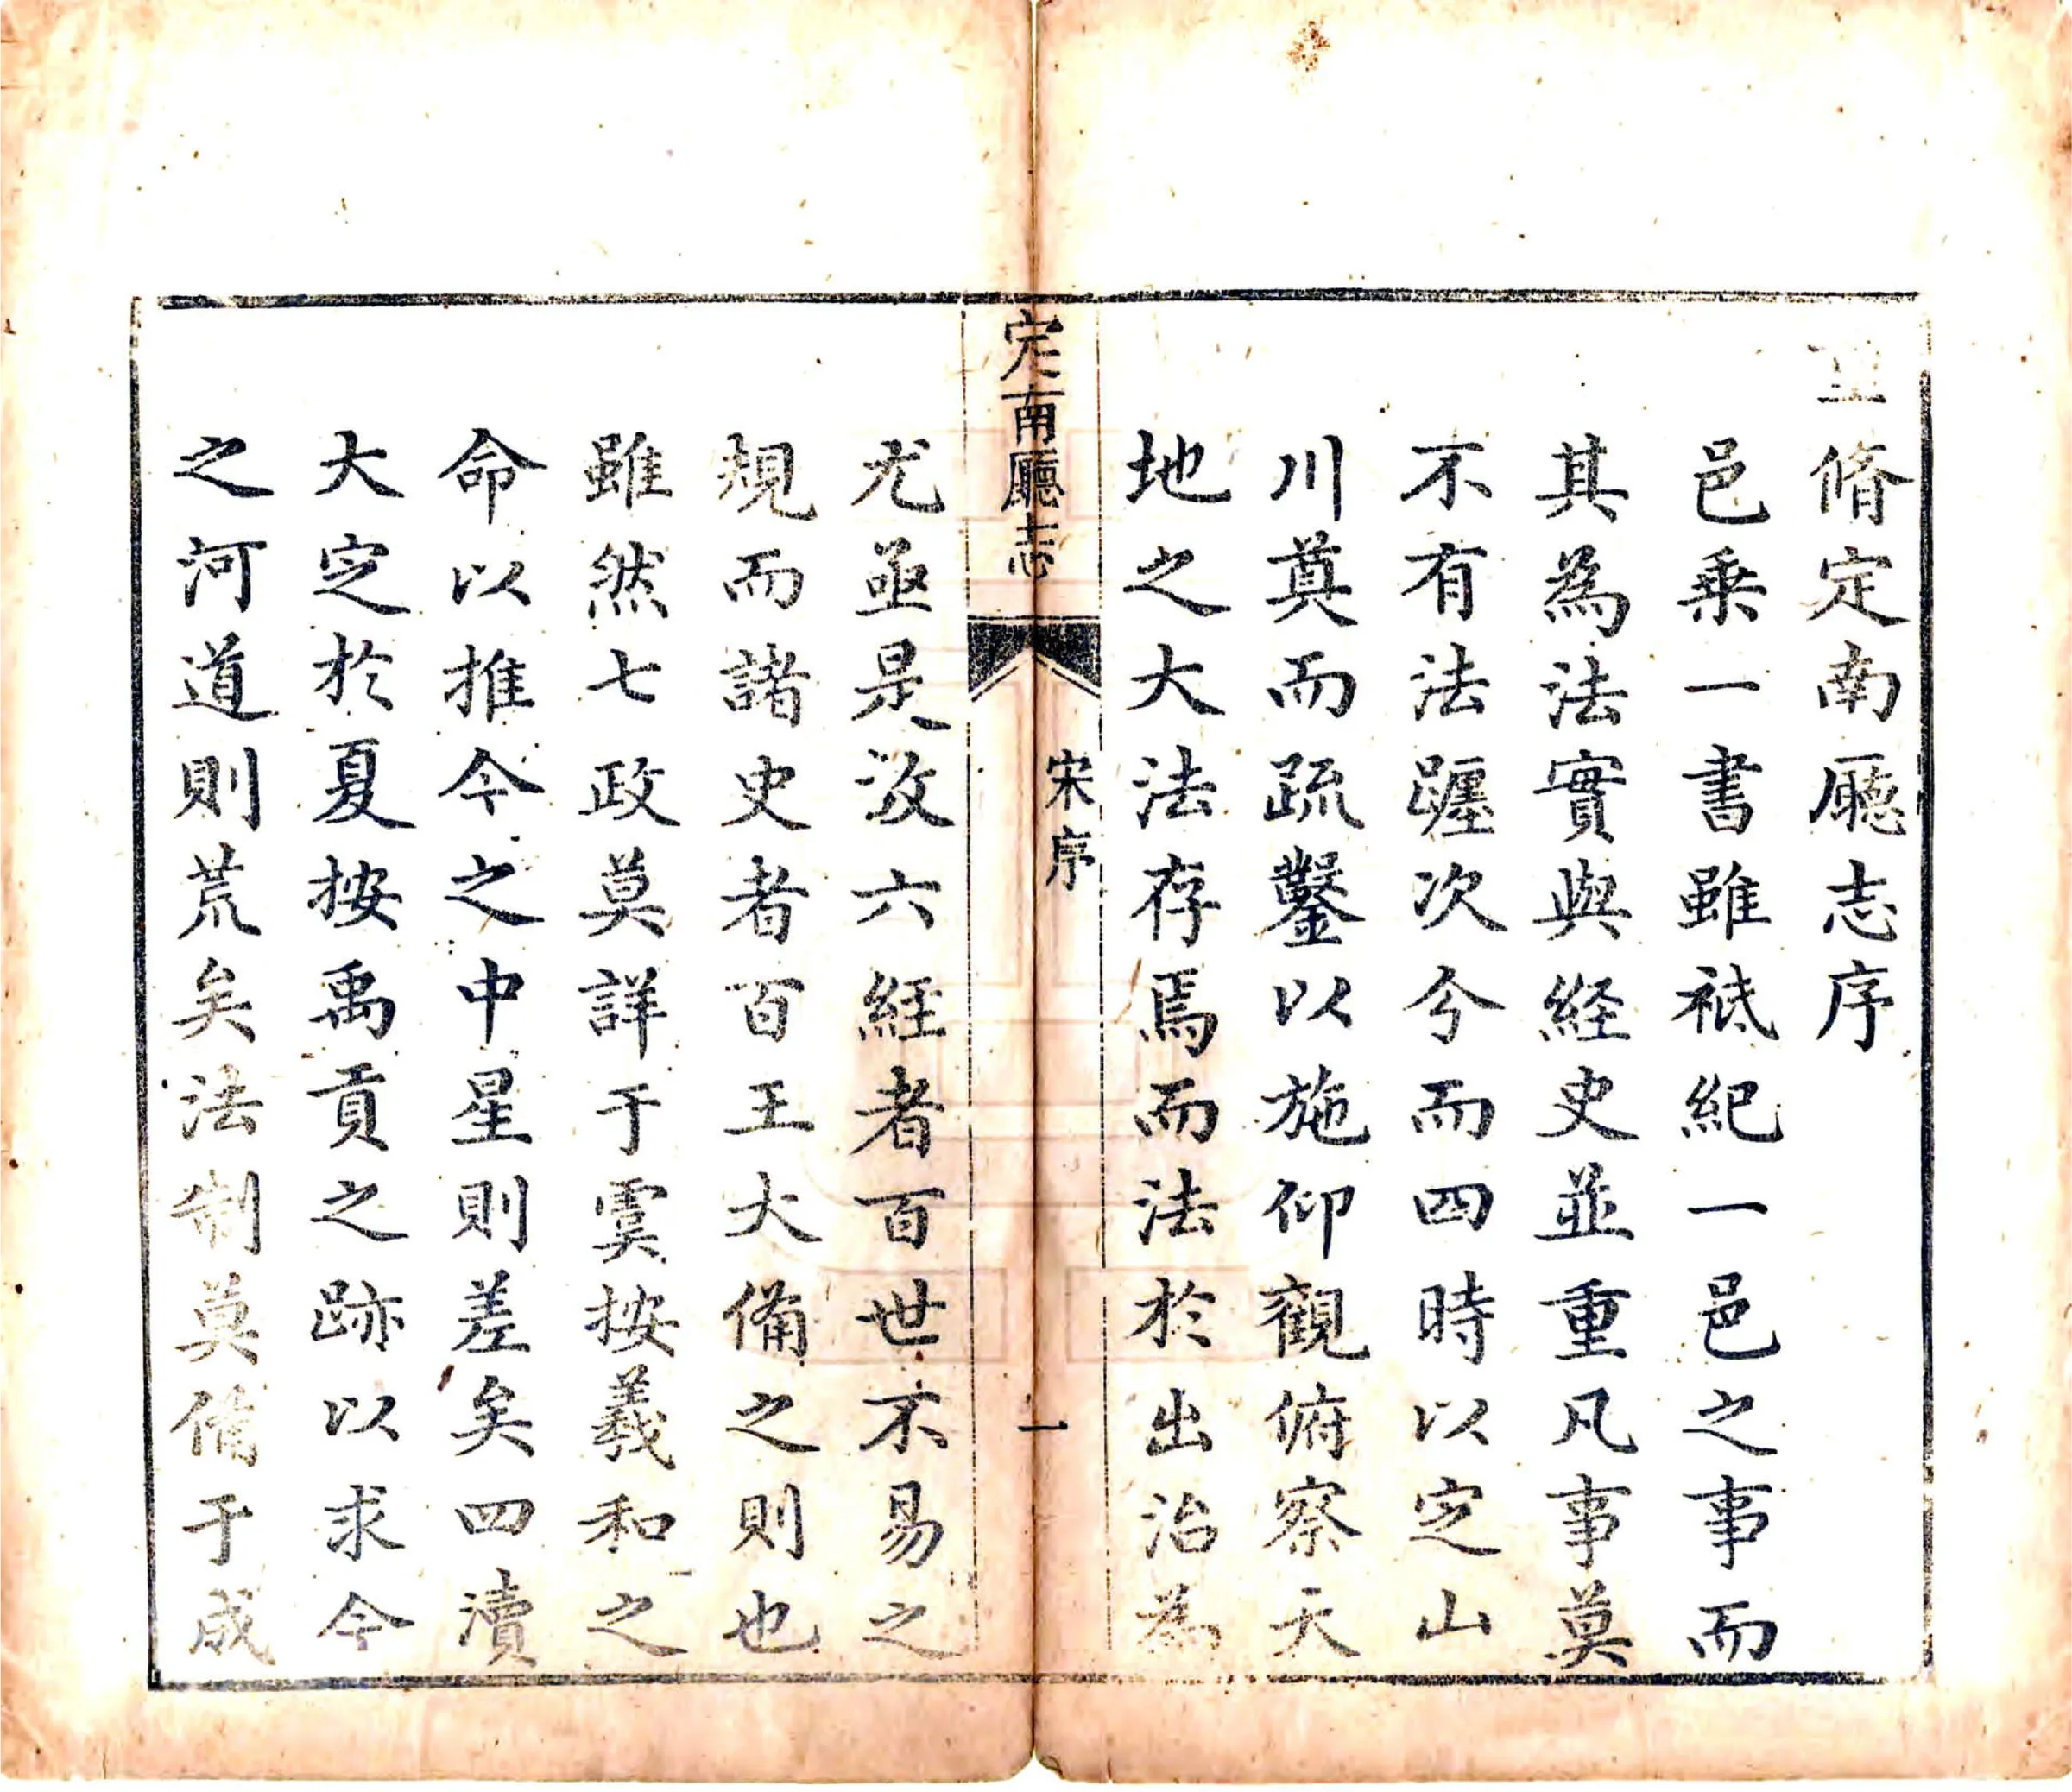 脩定南廳志序
邑乘一書雖祗紀一邑之事而
其為法實與経史並重凡事莫
不有法躔次分而四時以定山
川奠而疏鑿以施仰觀俯察天
地之大法存焉而法於出治為
定南廳志
宋序
一
尤亟是故六経者百世不易之
規而諸史者百王大備之則也
雖然七政莫詳于虞按羲和之
命以推今之中星則差矣四瀆
大定於夏按禹貢之跡以求今
之河道則荒矣法制莫備于成